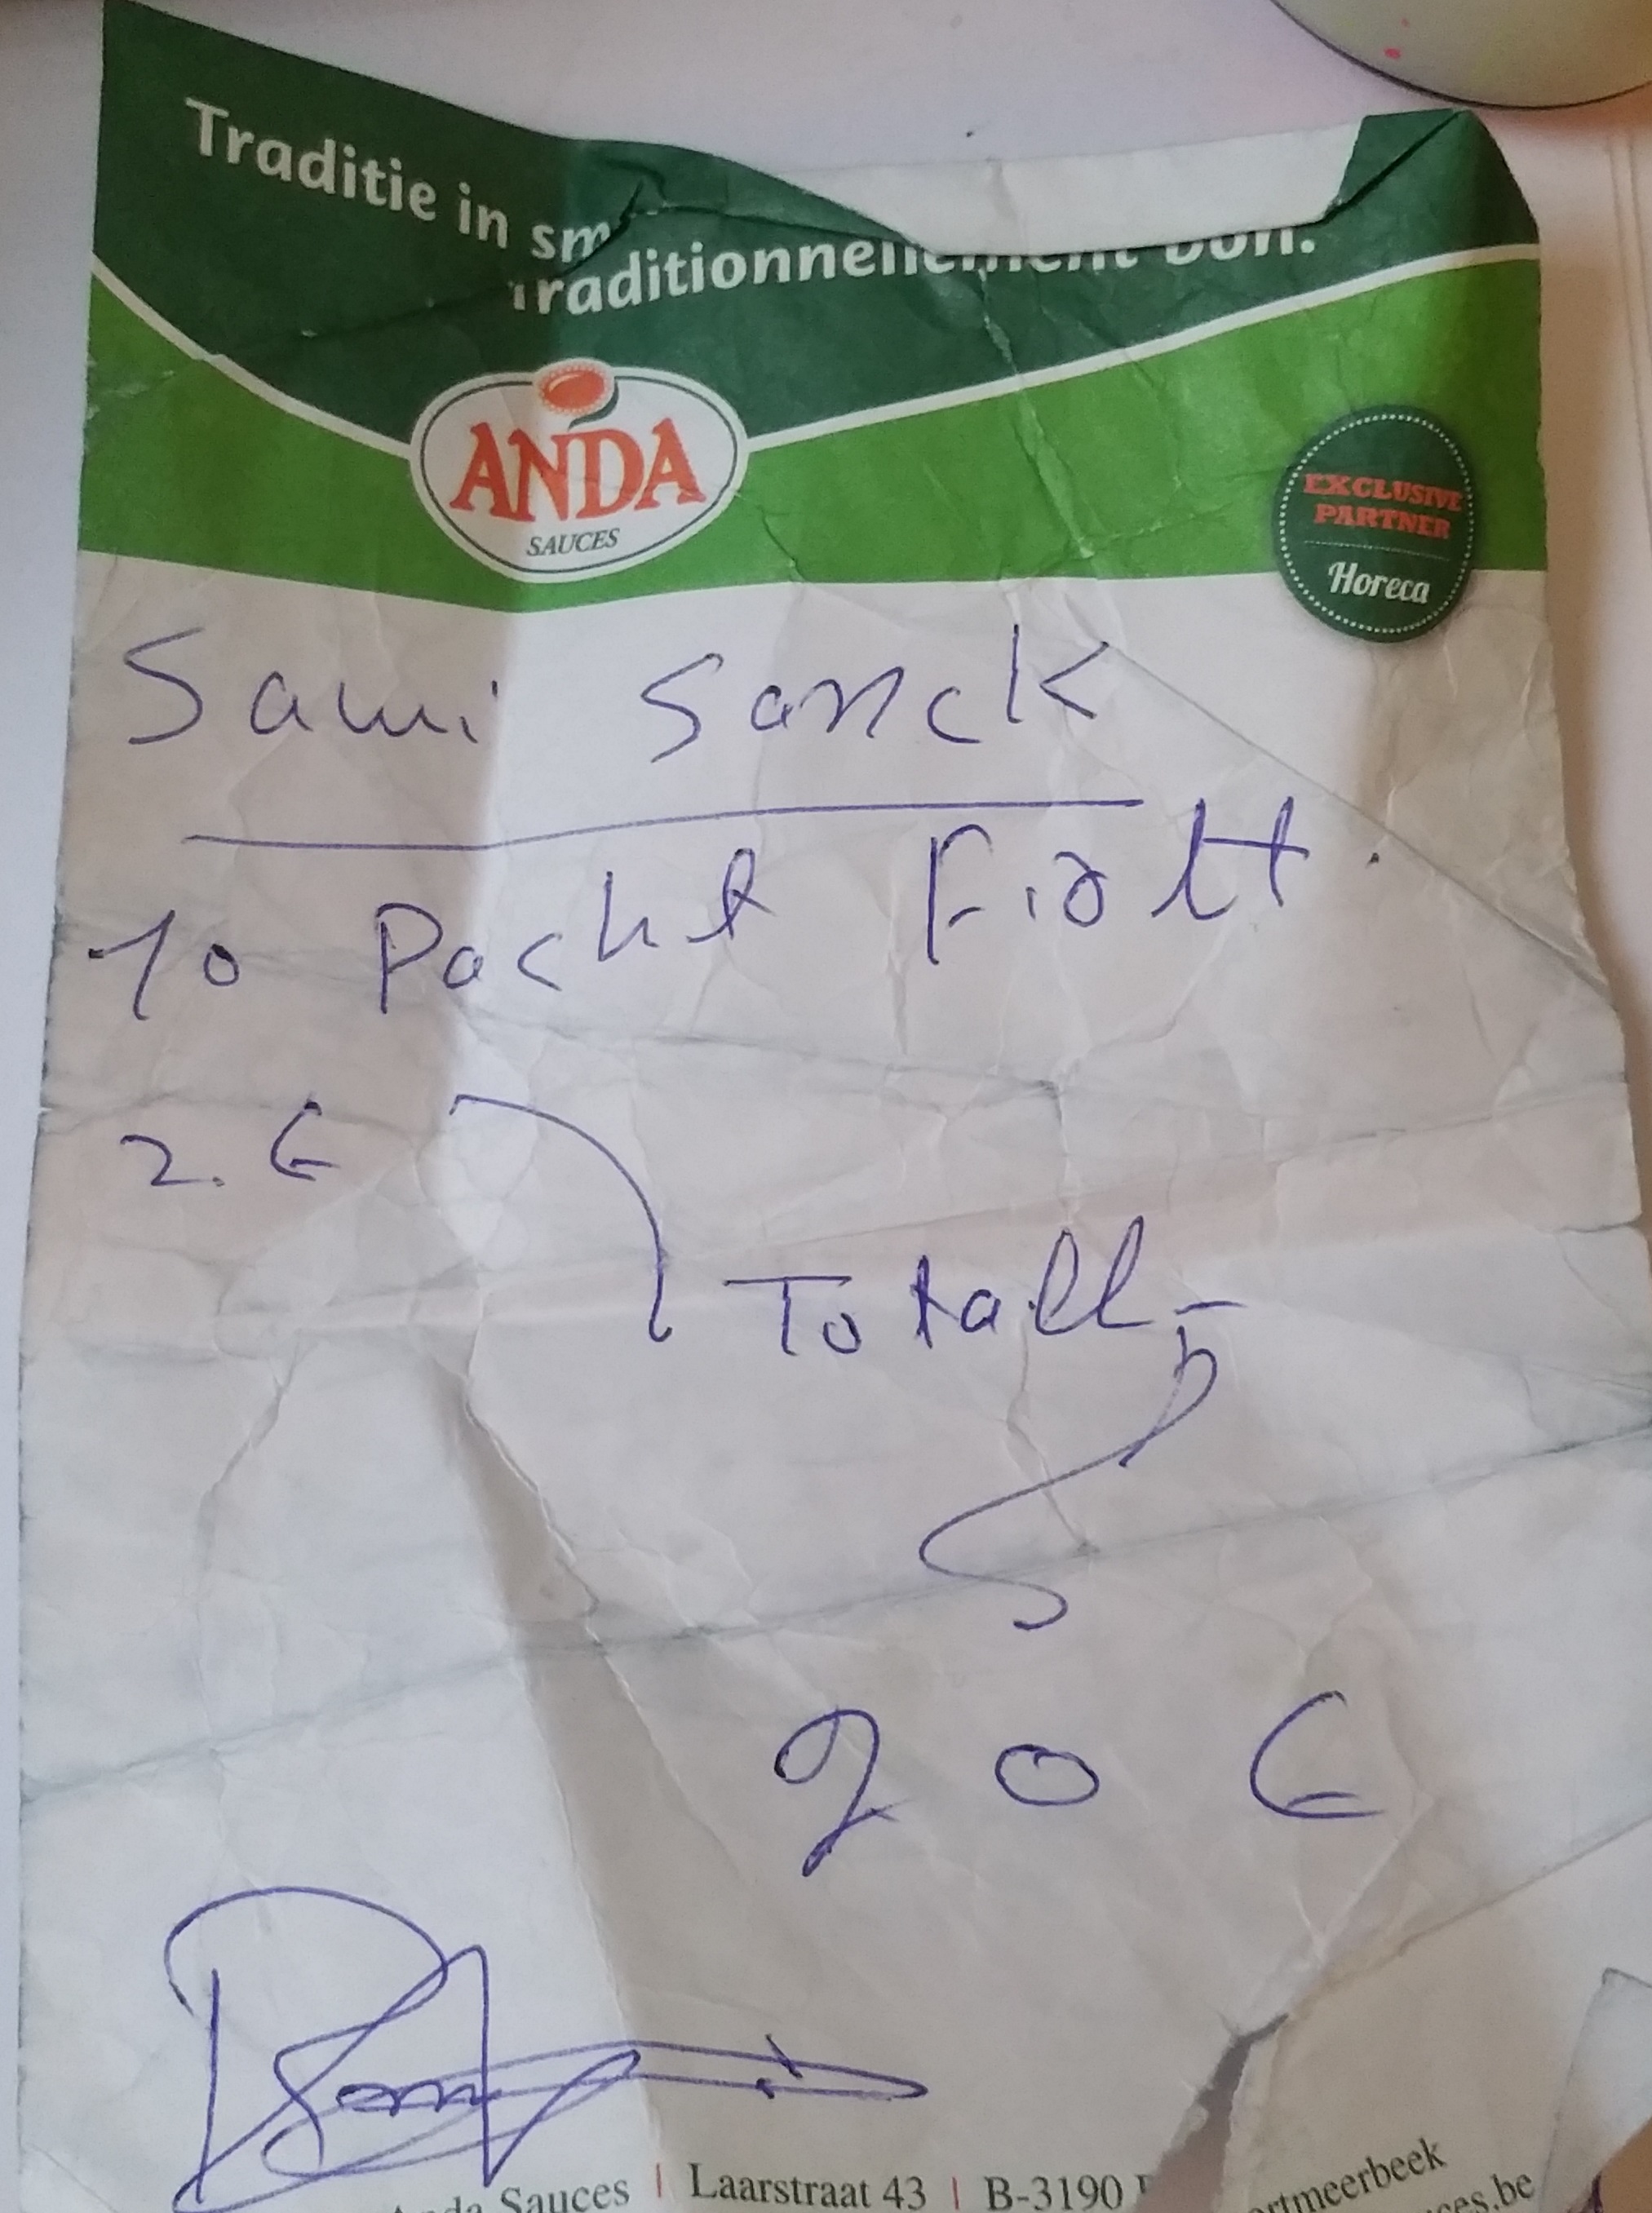 Traditie in sm
Traditionnellement bon.
ANDA
SAUCES
EXCLUSIVE
PARTNER
Horeca
Sami Sanck
10 Packet Fiatt.
2. €
Totall
20 €
Anda Sauces | Laarstraat 43 | B-3190
ortmeerbeek
ces.be